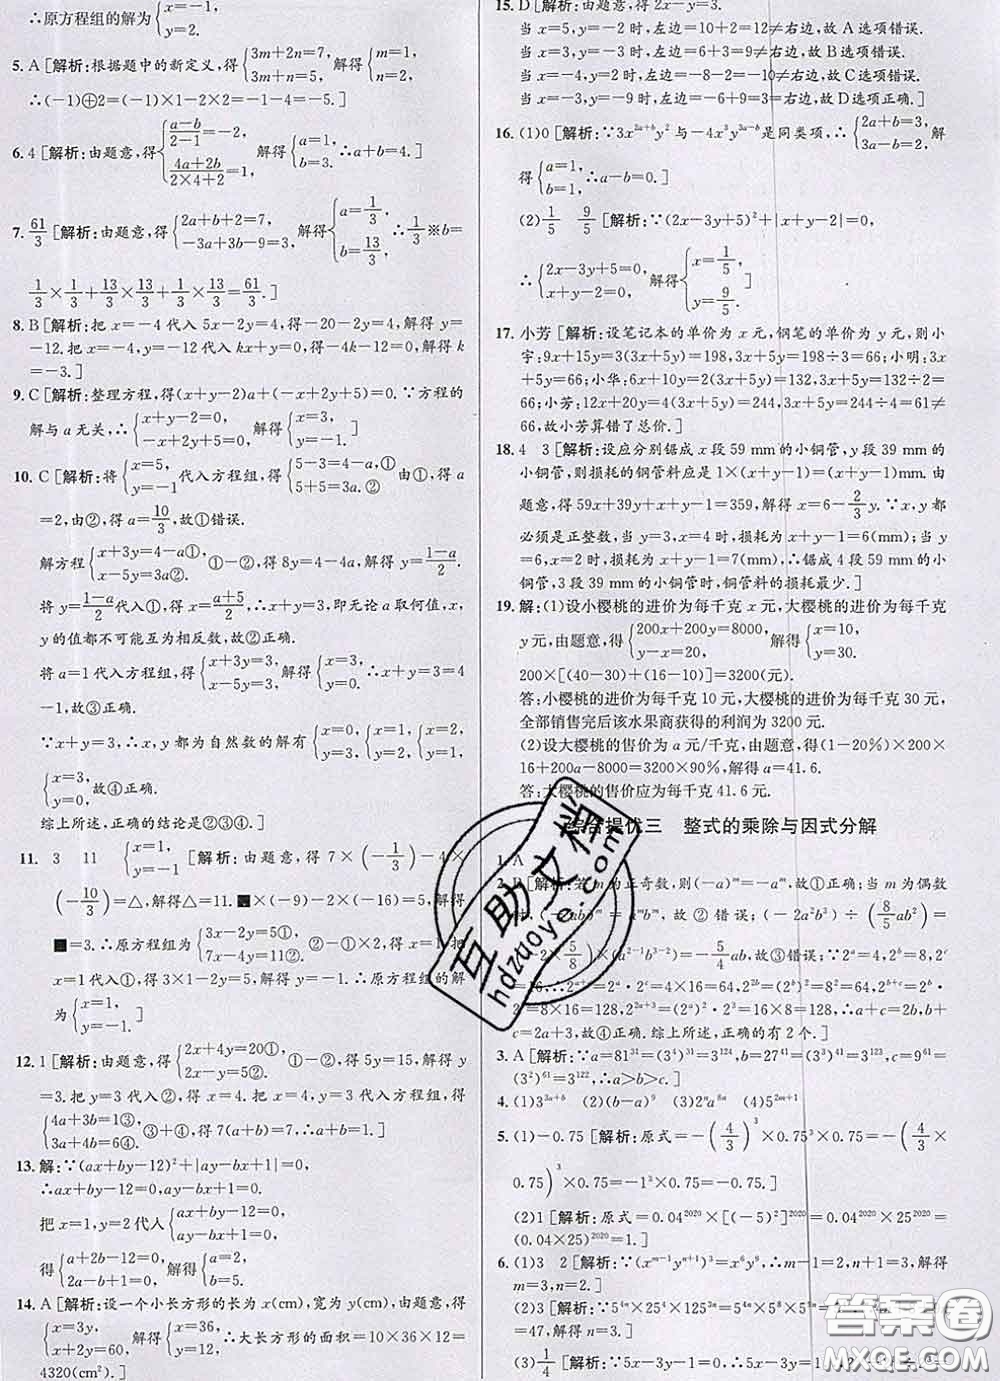 ∴原方程组的解为{x=−1, y=2.
5. A [解析:根据题中的新定义,得{3m+2n=7, 3m+n=5, 解得{m=1, n=2.
∴(−1)⊕2=(−1)×1−2×2=−1−4=−5.]
6. 4 [解析:由题意,得{(a−b)/(2−1)=−2, (4a+2b)/(2×4+2)=1, 解得{a=1, b=3. ∴a+b=4.]
7. 61/3 [解析:由题意,得{2a+b+2=7, −3a+3b−9=3, 解得{a=1/3, b=13/3. ∴1/3※b=
1/3×1/3+13/3×13/3+1/3×13/3=61/3.]
8. B [解析:把 x=−4 代入 5x−2y=4,得−20−2y=4,解得 y=
−12.把 x=−4,y=−12 代入 kx+y=0,得−4k−12=0,解得 k
=−3.]
9. C [解析:整理方程,得(x+y−2)a+(−x+2y+5)=0.∵方程的
解与 a 无关,∴{x+y−2=0, −x+2y+5=0, 解得{x=3, y=−1.]
10. C [解析:将{x=5, y=−1 代入方程组,得{5−3=4−a,① 5+5=3a.② 由①,得 a
=2,由②,得 a=10/3,故①错误.
解方程{x+3y=4−a①, x−5y=3a②. ①−②,得 8y=4−4a,解得 y=(1−a)/2.
将 y=(1−a)/2代入①,得 x=(a+5)/2,∴x+y=3,即无论 a 取何值,x,
y 的值都不可能互为相反数,故②正确.
将 a=1 代入方程组,得{x+3y=3, x−5y=3, 解得{x=3, y=0. ∴x+y=3=4
−1,故③正确.
∵x+y=3,∴x,y 都为自然数的解有{x=0, y=3, {x=1, y=2, {x=2, y=1,
{x=3, y=0, 故④正确.
综上所述,正确的结论是②③④.]
11. 3 11 {x=1, y=−1 [解析:由题意,得 7×(−1/3)−4×
(−10/3)=△,解得△=11.■×(−9)−2×(−16)=5,解得
■=3.∴原方程组为{3x−2y=5①, 7x−4y=11②. 得 x=1.把
x=1代入①,得 3×1−2y=5,解得 y=−1.∴原方程组的解
为{x=1, y=−1.]
12. 1 [解析:由题意,得{2x+4y=20①, 2x−y=5②. ①−②,得 5y=15,解得 y
=3.把 y=3 代入②,得 x=4.把 x=4,y=3 代入,得
{4a+3b=1③, 3a+4b=6④. ③+④,得 7(a+b)=7,∴a+b=1.]
13. 解:∵(ax+by−12)²+|ay−bx+1|=0,
∴ax+by−12=0,ay−bx+1=0.
把 x=1,y=2 代入{ax+by−12=0, ay−bx+1=0,
得{a+2b−12=0, 2a−b+1=0, 解得{a=2, b=5.
14. A [解析:设一个小长方形的长为 x(cm),宽为 y(cm),由题意,得
{x=3y, x+2y=60, 解得{x=36, y=12. ∴大长方形的面积=10×36×12=
4320(cm²).]
15. D [解析:由题意,得 2x−y=3.
当 x=5,y=−2 时,左边=10+2=12≠右边,故 A 选项错误.
当 x=3,y=−3 时,左边=6+3=9≠右边,故 B 选项错误.
当 x=−4,y=2 时,左边=−8−2=−10≠右边,故 C 选项错误.
当 x=−3,y=−9 时,左边=−6+9=3=右边,故 D 选项正确.]
16. (1)0 [解析:∵3x²ᵃ⁺ᵇy²与−4x³y³ᵃ⁻ᵇ是同类项,∴{2a+b=3, 3a−b=2, 解
得{a=1, b=1, ∴a−b=0.]
(2)1/5 9/5 [解析:∵(2x−3y+5)²+|x+y−2|=0,
∴{2x−3y+5=0, x+y−2=0, 解得{x=1/5, y=9/5.]
17. 小芳 [解析:设笔记本的单价为 x 元,钢笔的单价为 y 元,则小
宇:9x+15y=3(3x+5y)=198,3x+5y=198÷3=66;小明:3x
+5y=66;小华:6x+10y=2(3x+5y)=132,3x+5y=132÷2=
66;小芳:12x+20y=4(3x+5y)=244,3x+5y=244÷4=61≠
66,故小芳算错了总价.]
18. 4 3 [解析:设应分别锯成 x 段 59 mm 的小铜管,y 段 39 mm 的
小铜管,则损耗的铜管料应是 1×(x+y−1)=(x+y−1)mm.由
题意,得 59x+39y+x+y−1=359,解得 x=6−2/3y.∵x,y 都
必须是正整数,当 y=3,x=4 时,损耗为 x+y−1=6(mm);当
y=6,x=2 时,损耗为 x+y−1=7(mm),∴锯成 4 段 59 mm 的小
铜管,3 段 39 mm 的小铜管时,铜管料的损耗最少.]
19. 解:(1)设小樱桃的进价为每千克 x 元,大樱桃的进价为每千克
y 元,由题意,得{200x+200y=8000, y−x=20, 解得{x=10, y=30.
200×[(40−30)+(16−10)]=3200(元).
答:小樱桃的进价为每千克 10 元,大樱桃的进价为每千克 30 元,
全部销售完后该水果商获得的利润为 3200 元.
(2)设大樱桃的售价为 a 元/千克,由题意,得(1−20%)×200×
16+200a−8000=3200×90%,解得 a=41.6.
答:大樱桃的售价应为每千克 41.6 元.
综合提优三 整式的乘除与因式分解
1. A
2. B [解析:若 m 为正奇数,则(−a)ᵐ=−aᵐ,故①正确;当 m 为偶数
故②错误;(−2a²b³)÷(8/5ab²)=
−2×5/8(a²⁻¹b³⁻²)=−5/4ab,故③正确;∵2ᵃ=4,2ᵇ=8,2ᶜ
=16,∴2ᵃ⁺ᶜ=2ᵃ·2ᶜ=4×16=64,2²ᵇ=(2ᵇ)²=64,2ᵇ⁺ᶜ=
2ᵇ·2ᶜ=8×16=128,2²ᵃ⁺³=(2ᵃ)²×2³=16×8=128,∴b+
c=2a+3,故④正确.综上所述,正确的有 2 个.]
3. A [解析:∵a=81³¹=(3⁴)³¹=3¹²⁴,b=27⁴¹=(3³)⁴¹=3¹²³,c=9⁶¹=
(3²)⁶¹=3¹²²,∴a>b>c.]
4. (1)3³ᵃ⁺ᵇ (2)(b−a)⁹ (3)2ⁿa⁸ⁿ (4)5²ᵐ⁺¹
5. (1)−0.75 [解析:原式=−(4/3)³×0.75³×0.75=−(4/3×
0.75)³×0.75=−1³×0.75=−0.75.]
(2)1 [解析:原式=0.04²⁰²⁰×[(−5)²]²⁰²⁰=0.04²⁰²⁰×25²⁰²⁰=
(0.04×25)²⁰²⁰=1.]
6. (1)3 2 [解析:∵(xᵐ⁻¹yⁿ⁺¹)³=x⁶y⁹,∴m−1=2,n+1=3,解得
m=3,n=2.]
=47,解得 n=3.]
互助文档
hdzuoye.com
答案圈
MXQE.COM